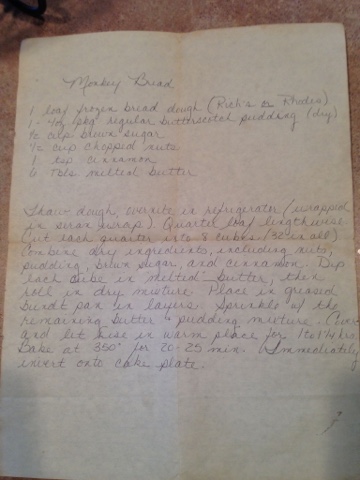 Monkey Bread
1 loaf frozen bread dough (Rich's or Rhodes)
1 - 4oz pkg regular butterscotch pudding (dry)
½ cup brown sugar
½ cup chopped nuts
1 tsp cinnamon
6 Tbls melted butter
Thaw dough overnite in refrigerator (wrapped
in saran wrap). Quarter loaf lengthwise
Cut each quarter into 8 cubes. (32 in all)
Combine dry ingredients, including nuts,
pudding, brown sugar, and cinnamon. Dip
each cube in melted butter, then
roll in dry mixture. Place in greased
bundt pan in layers. Sprinkle w/ the
remaining butter & pudding mixture.
and let rise in warm place for 1 to 1¼ hrs
Bake at 350° for 20-25 min. Immediately
invert onto cake plate.